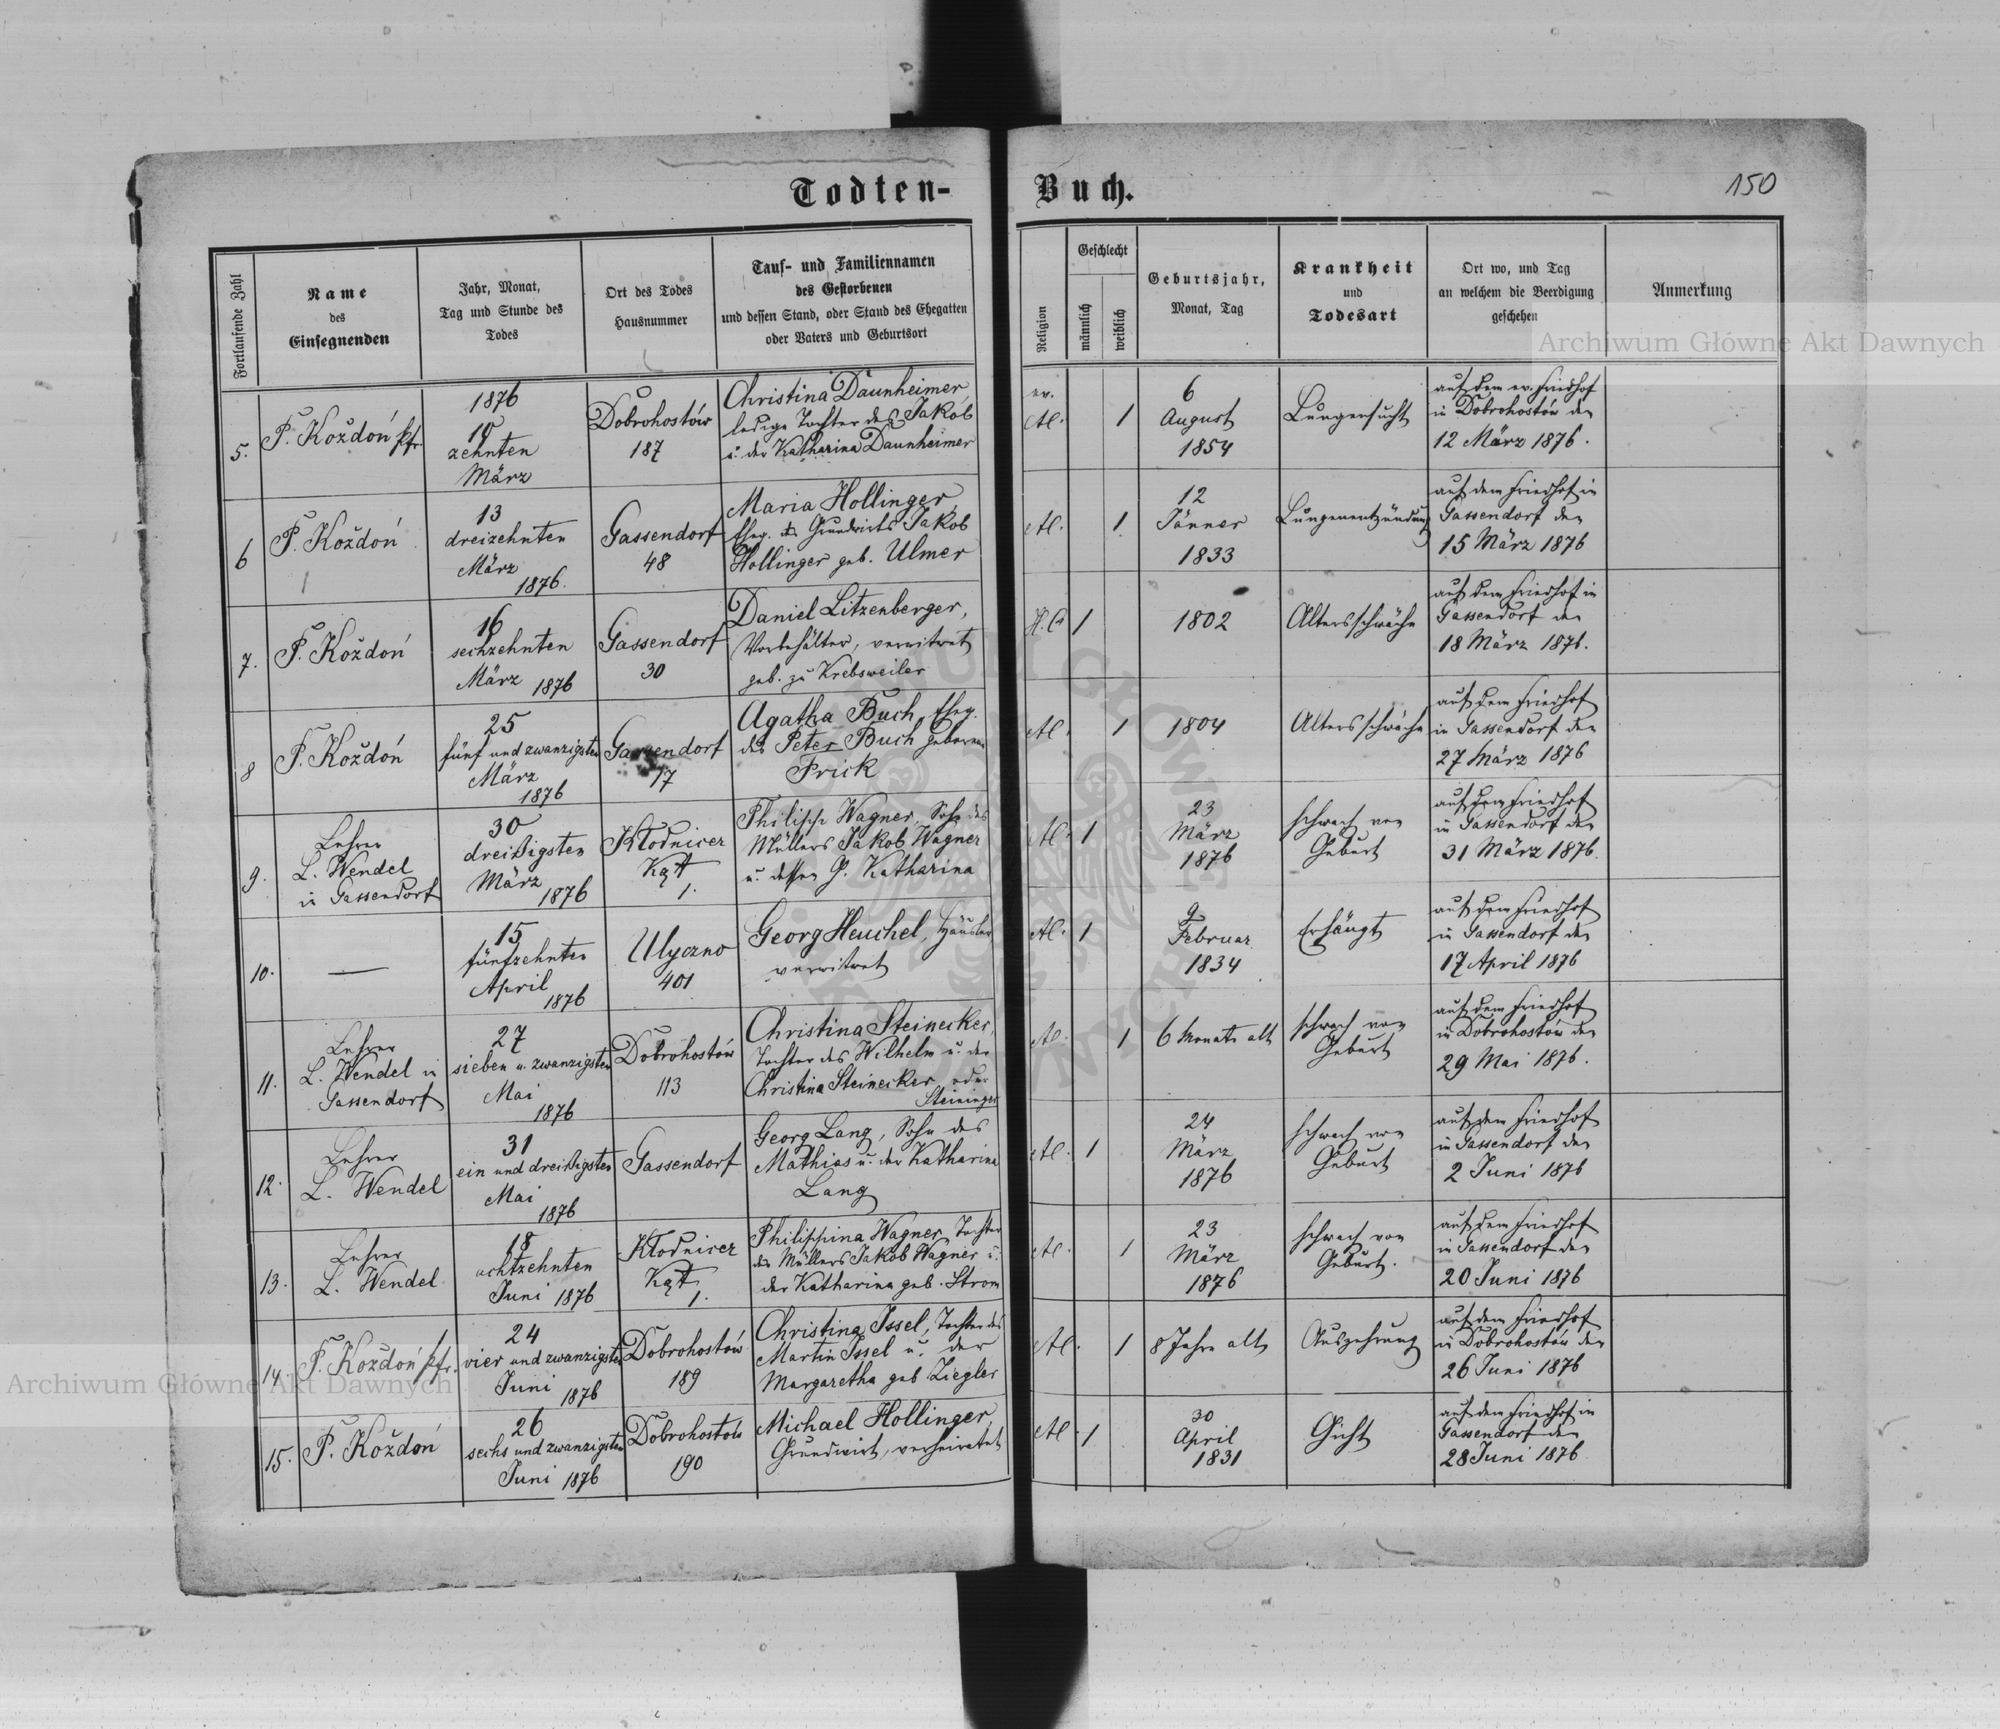 Todten-Buch.
150
Fortlaufende Zahl
Name
des
Einsegnenden
Jahr, Monat,
Tag und Stunde des
Todes
Ort des Todes
Hausnummer
Tauf- und Familiennamen
des Gestorbenen
und dessen Stand, oder Stand des Ehegatten
oder Vaters und Geburtsort
Religion
Geschlecht
männlich
weiblich
Geburtsjahr,
Monat, Tag
Krankheit
und
Todesart
Ort wo, und Tag
an welchem die Beerdigung
geschehen
Anmerkung
5.
P. Koždoń pfr.
1876
10
zehnten
März
Dobrohostów
187
Christina Daunheimer,
ledige Tochter des Jakob
u. der Katharina Daunheimer
ev.
AC.
1
6
August
1854
Lungensucht
auf dem ev. Friedhof
in Dobrohostów den
12 März 1876.
6
P. Koždoń
13
dreizehnten
März
1876.
Gassendorf
48
Maria Hollinger,
Eheg. des Grundwirts Jakob
Hollinger geb. Ulmer
AC.
1
12
Jänner
1833
Lungenentzündung
auf dem Friedhof in
Gassendorf den
15 März 1876
7.
P. Koždoń
16
sechzehnten
März 1876
Gassendorf
30
Daniel Litzenberger,
Vorbehälter, verwitwet
geb. zu Krebsweiler
H.C
1
1802
Altersschwäche
auf dem Friedhof in
Gassendorf den
18 März 1876.
8
P. Koždoń
25
fünf und zwanzigsten
März
1876
Gassendorf
17
Agatha Buch, Eheg.
des Peter Buch geborene
Frick
AC.
1
1804
Altersschwäche
auf dem Friedhof
in Gassendorf den
27 März 1876
9.
Lehrer
L. Wendel
in Gassendorf
30
dreißigsten
März
1876
Kłodnicer
Kąt
1.
Philipp Wagner, Sohn des
Müllers Jakob Wagner
u. dessen G. Katharina
AC.
1
23
März
1876
schwach von
Geburt
auf dem Friedhof
in Gassendorf den
31 März 1876.
10.
—
15
fünfzehnten
April
1876
Ulyczno
401
Georg Heuchel, Häusler
verwitwet
AC.
1
9
Februar
1834
Erhängt
auf dem Friedhof
in Gassendorf den
17 April 1876
11.
Lehrer
L. Wendel in
Gassendorf
27
sieben u. zwanzigsten
Mai
1876
Dobrohostów
113
Christina Steinecker,
Tochter des Wilhelm u. der
Christina Steinecker oder
Steininger
AC.
1
6 Monate alt
schwach von
Geburt
auf dem Friedhof
in Dobrohostów den
29 Mai 1876.
12.
Lehrer
L. Wendel
31
ein und dreißigsten
Mai
1876
Gassendorf
Georg Lang, Sohn des
Mathias u. der Katharina
Lang
AC.
1
24
März
1876
schwach von
Geburt
auf dem Friedhof
in Gassendorf den
2 Juni 1876
13.
Lehrer
L. Wendel
18
achtzehnten
Juni 1876
Kłodnicer
Kąt
1.
Philippina Wagner, Tochter
des Müllers Jakob Wagner u.
der Katharina geb. Strom
AC.
1
23
März
1876
schwach von
Geburt.
auf dem Friedhof
in Gassendorf den
20 Juni 1876
14
P. Koždoń pfr.
24
vier und zwanzigsten
Juni 1876
Dobrohostów
189
Christina Issel, Tochter des
Martin Issel u. der
Margaretha geb Ziegler
AC.
1
8 Jahre alt
Auszehrung
auf dem Friedhof
in Dobrohostów den
26 Juni 1876
15.
P. Koždoń
26
sechs und zwanzigsten
Juni 1876
Dobrohostów
190
Michael Hollinger,
Grundwirt, verheiratet
AC.
1
30
April
1831
Gicht
auf dem Friedhof in
Gassendorf den
28 Juni 1876
Archiwum Główne Akt Dawnych
Archiwum Główne Akt Dawnych